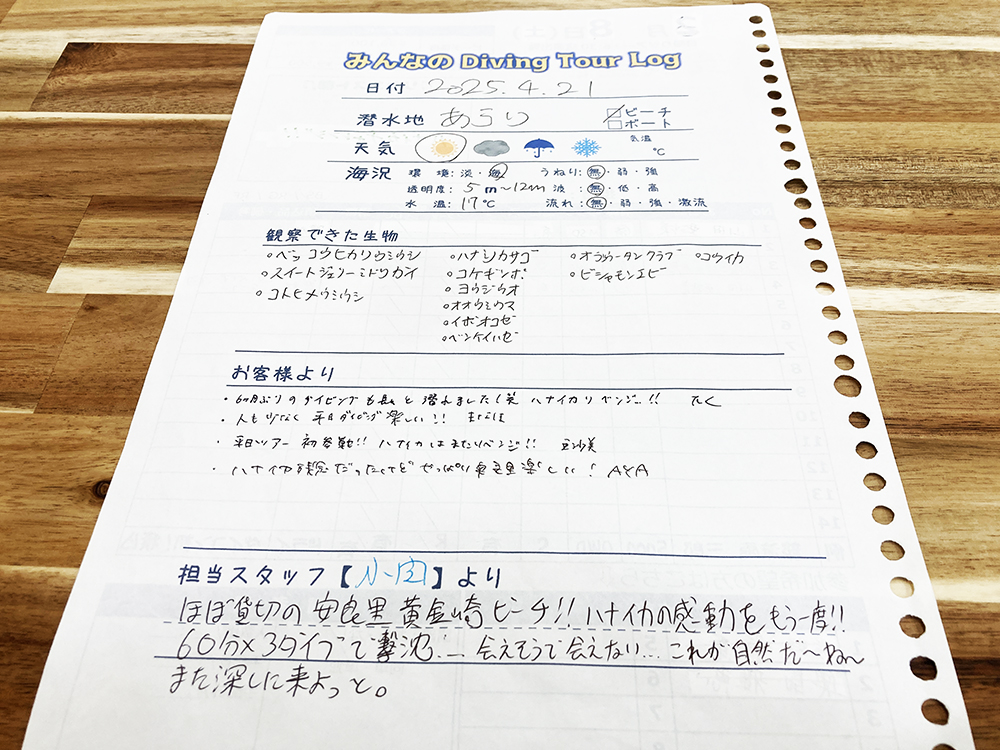 みんなの Diving Tour Log
日付 2025.4.21
潜水地 あらり ビーチ ボート
天気 気温 ℃
海況 環境:淡・海 うねり:無・弱・強
透明度:5m~12m 波:無・低・高
水温:17℃ 流れ:無・弱・強・激流
観察できた生物
○ベッコウヒカリウミウシ ○ハナミノカサゴ ○オラウータンクラブ ○コウイカ
○スイートジェリーミドリガイ ○コケギンポ ○ビシャモンエビ
○コトヒメウミウシ ○ヨウジウオ
○オオウミウマ
○イボオコゼ
○ベンケイハゼ
お客様より
・6ヶ月ぶりのダイビングも と潜れました(笑 ハナイカリベンジ…!! たく
・人も少なく 平日ダイビング楽しい!!
・平日ツアー初参戦!! ハナイカはまたリベンジ!! 亜沙美
・ハナイカ残念だったけど やっぱり 楽しい! AYA
担当スタッフ【小田】より
ほぼ貸切の 安良里 黄金崎ビーチ!! ハナイカの感動をもう一度!!
60分×3ダイブで撃沈!… 会えそうで会えない… これが自然だ〜ね〜
また深しに来よっと。